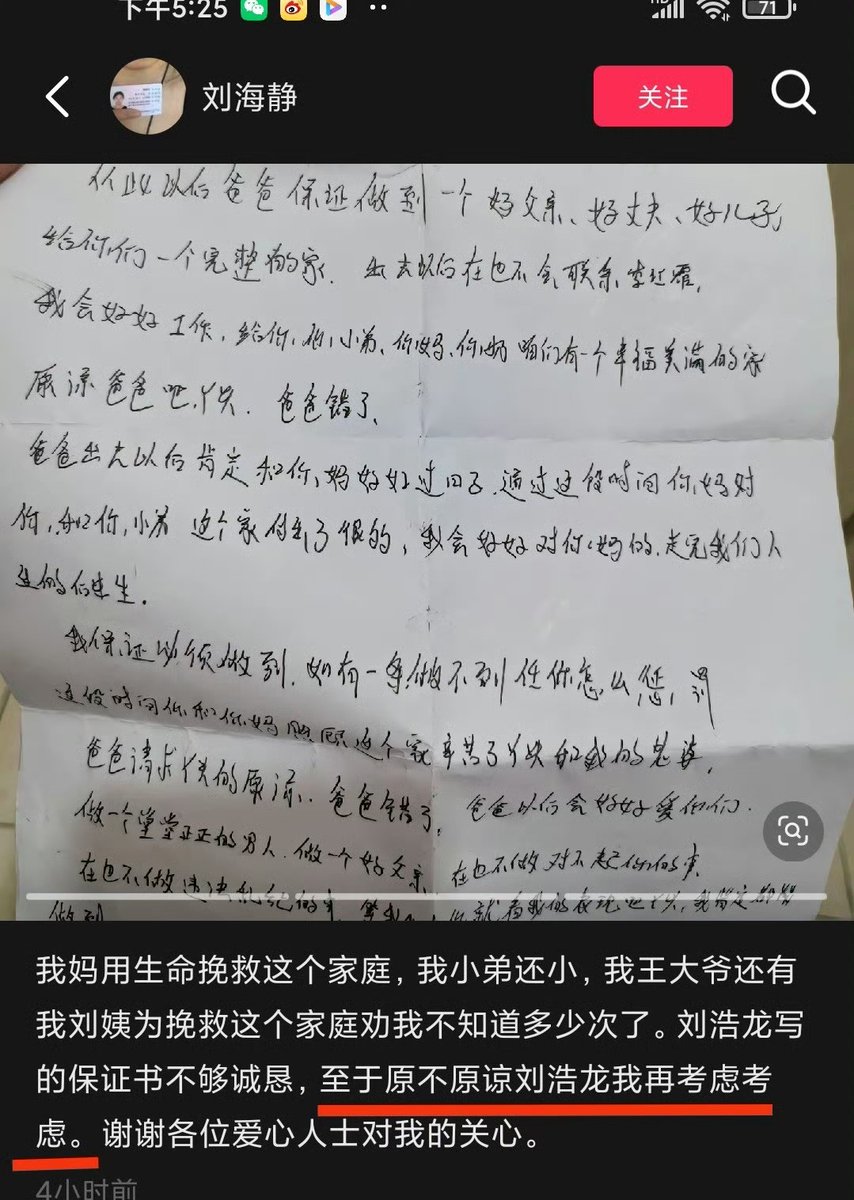 下午5:25
71
刘海静
关注
从此以后爸爸保证做到一个好父亲、好丈夫、好儿子,
给你们一个完整的家. 出去以后在也不会联系李红霞,
我会好好工作,给你,和,小弟、你妈、你奶 咱们有一个幸福美满的家
原谅爸爸吧,丫头. 爸爸错了、
爸爸出去以后肯定和你,妈好好过日子.通过这段时间你,妈对
你,和你,小弟 这个家付出了很的,我会好好对你妈的.走完我们人
生的
我保证必须做到.如有一条做不到任你怎么惩,罚
这段时间你和你妈照顾这个家辛苦了丫头和我的老婆,
爸爸请求丫头的原谅. 爸爸错了, 爸爸以后会好好爱你们.
做一个堂堂正正的男人.做一个好父亲 在也不做对不起你们的事
在也不做违法乱纪的事 就看我的表现吧丫头,我肯定都能
做到
我妈用生命挽救这个家庭，我小弟还小，我王大爷还有
我刘姨为挽救这个家庭劝我不知道多少次了。刘浩龙写
的保证书不够诚恳，至于原不原谅刘浩龙我再考虑考
虑。谢谢各位爱心人士对我的关心。
4小时前